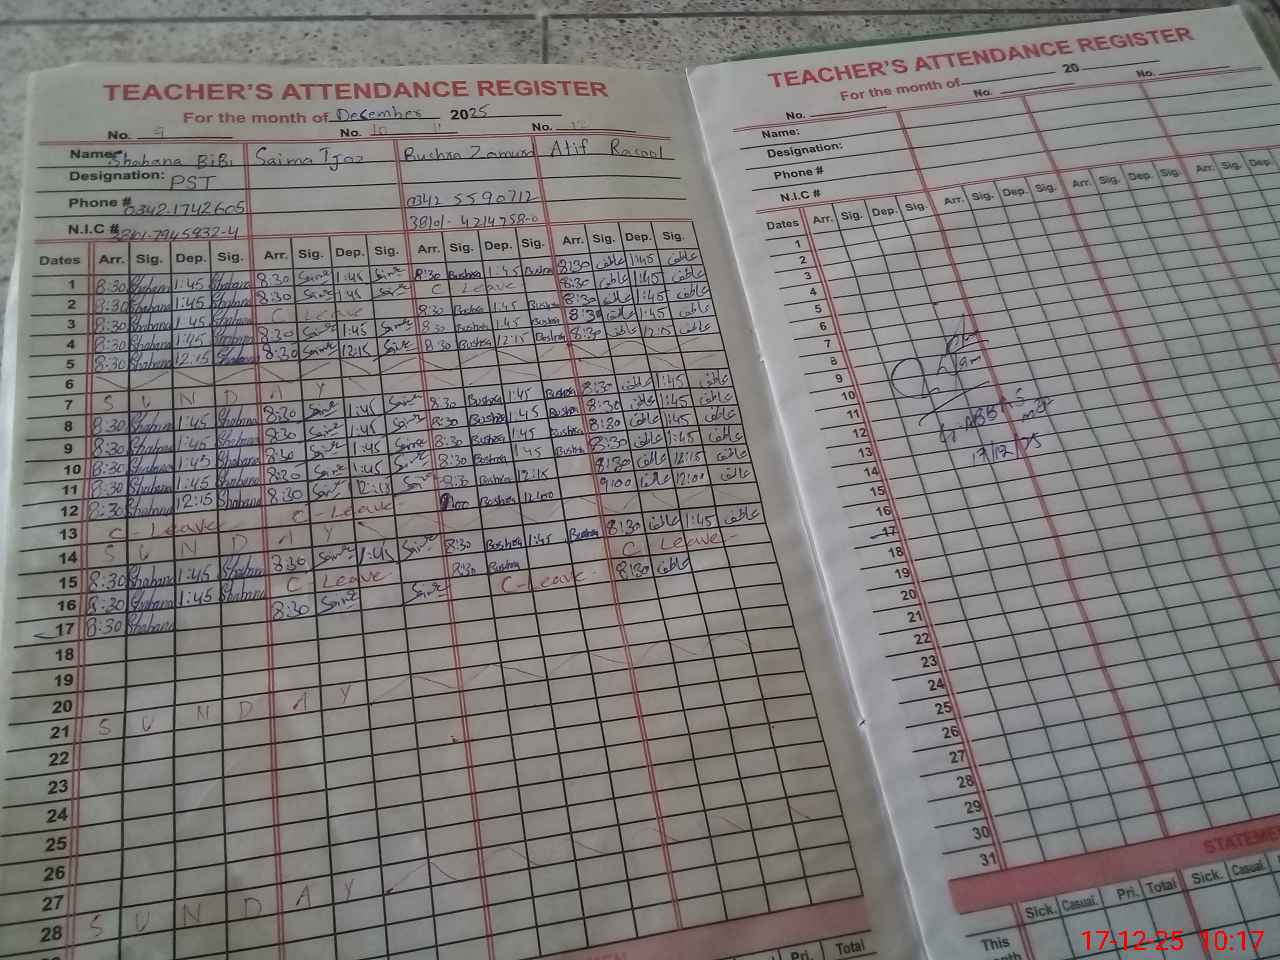 TEACHER'S ATTENDANCE REGISTER
For the month of December 2025
No. 9 No. 10 11 No. 12
Name: Shabana BiBi Saima Ijaz Bushra Zamurd Atif Rasool
Designation: PST
Phone # 0342-1742605 0342 5590712
N.I.C #
Dates Arr. Sig. Dep. Sig. Arr. Sig. Dep. Sig. Arr. Sig. Dep. Sig. Arr. Sig. Dep. Sig.
1 8:30 Shabana 1:45 Shabana 8:30 Saima 1:45 Saima 8:30 Bushra 1:45 Bushra 8:30 عاطف 1:45 عاطف
2 8:30 Shabana 1:45 Shabana 8:30 Saima 1:45 Saima C Leave 8:30 عاطف 1:45 عاطف
3 8:30 Shabana 1:45 Shabana C Leave 8:30 Bushra 1:45 Bushra 8:30 عاطف 1:45 عاطف
4 8:30 Shabana 1:45 Shabana 8:30 Saima 1:45 Saima 8:30 Bushra 1:45 Bushra 8:30 عاطف 1:45 عاطف
5 8:30 Shabana 12:15 Shabana 8:30 Saima 12:15 Saima 8:30 Bushra 12:15 Bushra 8:30 عاطف 12:15 عاطف
6
7 S U N D A Y
8 8:30 Shabana 1:45 Shabana 8:30 Saima 1:45 Saima 8:30 Bushra 1:45 Bushra 8:30 عاطف 1:45 عاطف
9 8:30 Shabana 1:45 Shabana 8:30 Saima 1:45 Saima 8:30 Bushra 1:45 Bushra 8:30 عاطف 1:45 عاطف
10 8:30 Shabana 1:45 Shabana 8:30 Saima 1:45 Saima 8:30 Bushra 1:45 Bushra 8:30 عاطف 1:45 عاطف
11 8:30 Shabana 1:45 Shabana 8:30 Saima 1:45 Saima 8:30 Bushra 1:45 Bushra 8:30 عاطف 1:45 عاطف
12 8:30 Shabana 12:15 Shabana 8:30 Saima 12:15 Saima 8:30 Bushra 12:15 8:30 عاطف 12:15 عاطف
13 C - Leave C - Leave 9:00 Bushra 12:00 9:00 عاطف 12:00 عاطف
14 S U N D A Y
15 8:30 Shabana 1:45 Shabana 8:30 Saima 1:45 Saima 8:30 Bushra 1:45 Bushra 8:30 عاطف 1:45 عاطف
16 8:30 Shabana 1:45 Shabana C - Leave 8:30 Bushra C Leave -
17 8:30 Shabana 8:30 Saima Saima C - Leave 8:30 عاطف
18
19
20
21 S U N D A Y
22
23
24
25
26
27
28 S U N D A Y
Pri. Total
TEACHER'S ATTENDANCE REGISTER
For the month of 20
No. No. No.
Name:
Designation:
Phone #
N.I.C #
Dates Arr. Sig. Dep. Sig. Arr. Sig. Dep. Sig. Arr. Sig. Dep. Sig. Arr. Sig. Dep.
1
2
3
4
5
6
7
8
9
10
11
12
13
14
15
16
17
18
19
20
21
22
23
24
25
26
27
28
29
30
31
ABBAS
17/12/25
STATEMEN
Sick. Casual. Pri. Total Sick. Casual.
This
17-12-25 10:17